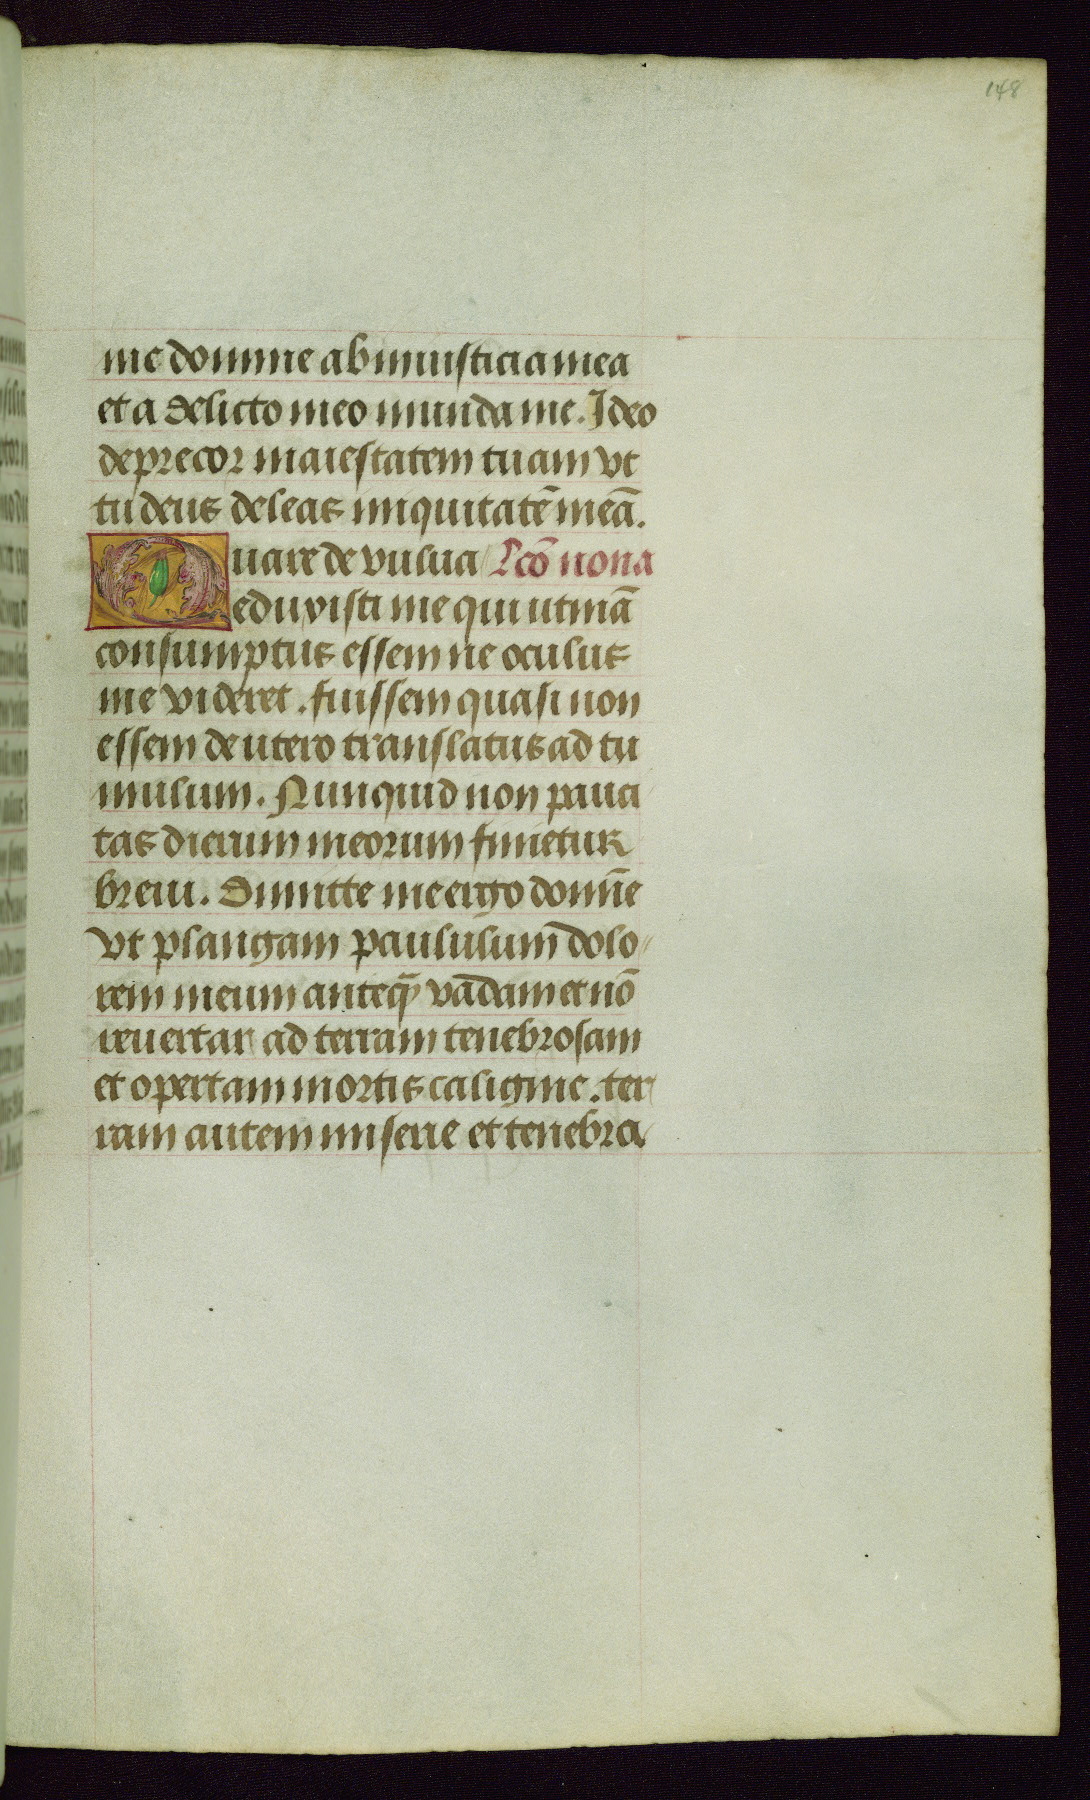 148
me domine ab iniusticia mea
et a delicto meo munda me. Ideo
deprecor maiestatem tuam vt
tu deus deleas iniquitatē meā.
Quare de vulua Lcō nona
eduxisti me qui utinā
consumptus essem ne oculus
me videret. fuissem quasi non
essem de utero translatus ad tu
mulum. Nunquid non pauci
tas dierum meorum finietur
breui. Dimitte me ergo domīe
vt plangam paululum dolo
rem meum anteq̄ vadam et nō
reuertar ad terram tenebrosam
et opertam mortis caligine. ter
ram autem miserie et tenebra